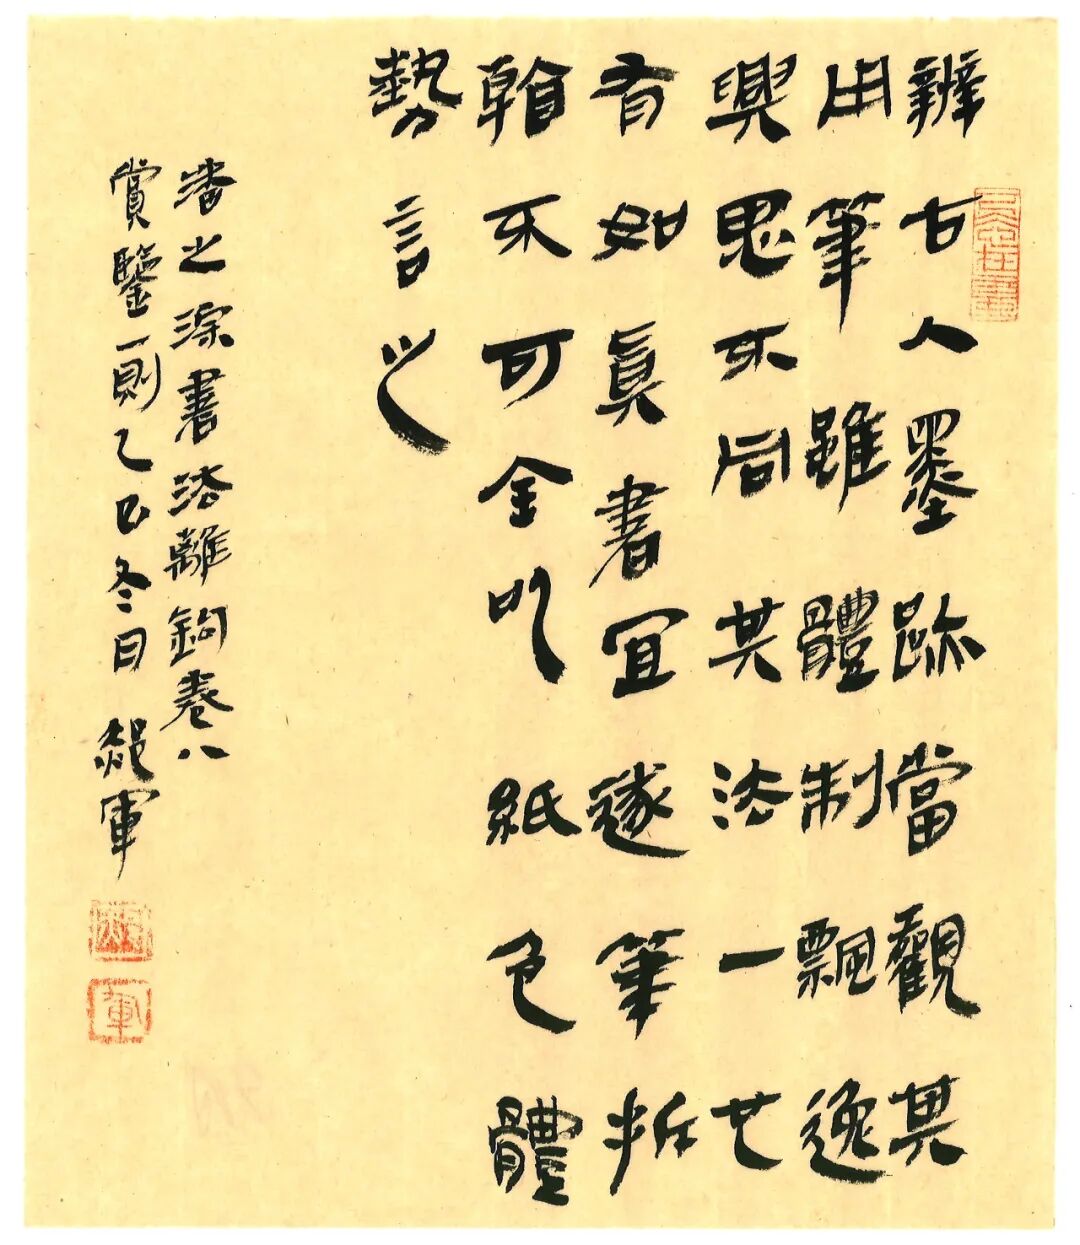 辨古人墨跡當觀其
用筆雖體制飄逸
興思不同其法一也
有如眞書宜逐筆拆
看不可全以紙色體
勢言之
潘之淙書法離鉤卷八
賞鑒一則乙巳冬日 軍
軍